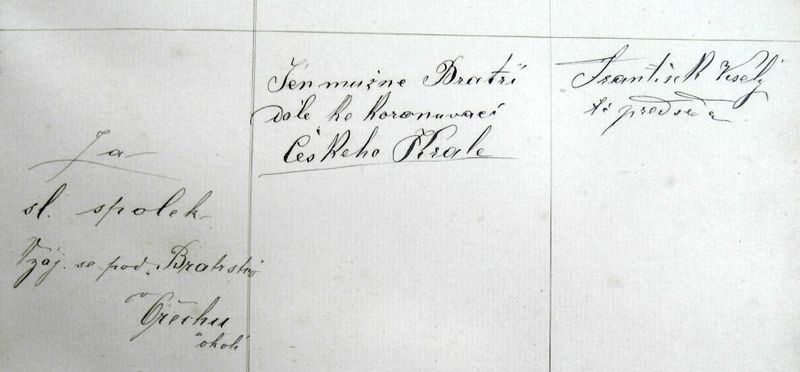 Za
sl. spolek
Vzáj. se pod. Bratrstvo
v Ořechu
a okolí
Jen mužne Bratři
dále ke korunovaci
Českeho Krale
František Veselý
t. č. předseda